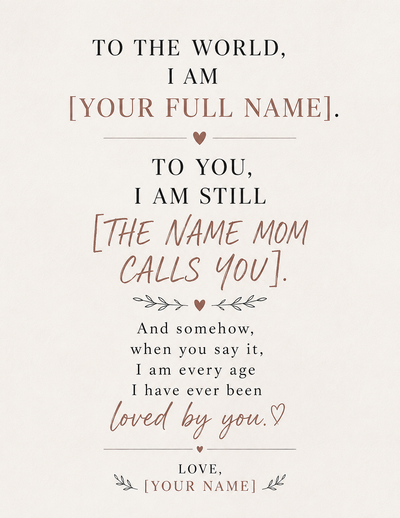 TO THE WORLD,
I AM
[YOUR FULL NAME].
TO YOU,
I AM STILL
[THE NAME MOM
CALLS YOU].
And somehow,
when you say it,
I am every age
I have ever been
loved by you.
LOVE,
[YOUR NAME]